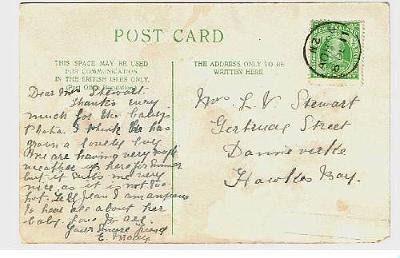 POST CARD
THIS SPACE MAY BE USED
FOR COMMUNICATION
IN THE BRITISH ISLES ONLY.
(Post Office Regulation)
THE ADDRESS ONLY TO BE
WRITTEN HERE
Dear Mrs Stewart.
Thanks very
much for the baby's
Photo. I think he has
a lovely
We are having very
weather here for
but it suits me very
nice, as it is not too
hot. Tell Jean I am anxious
to hear all about her
baby. Love to all.
Your
E.
Mrs L V Stewart
Gertrude Street
Dannevirke
Hawkes Bay.